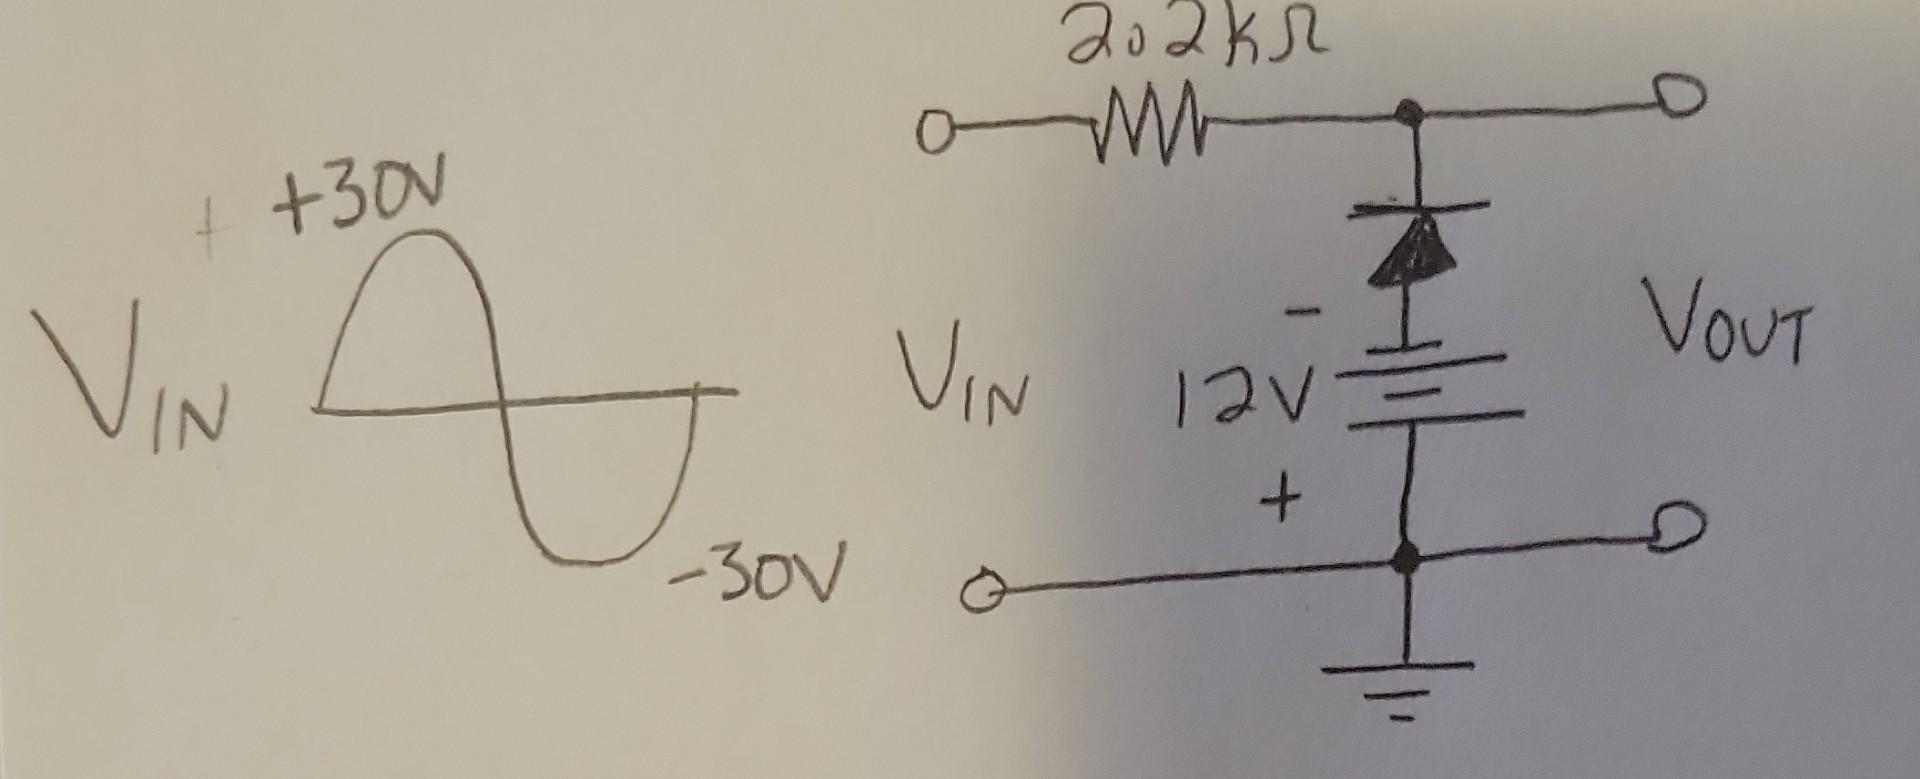 2.2kΩ
+30V
VIN
-30V
VIN
-
12V
+
VOUT